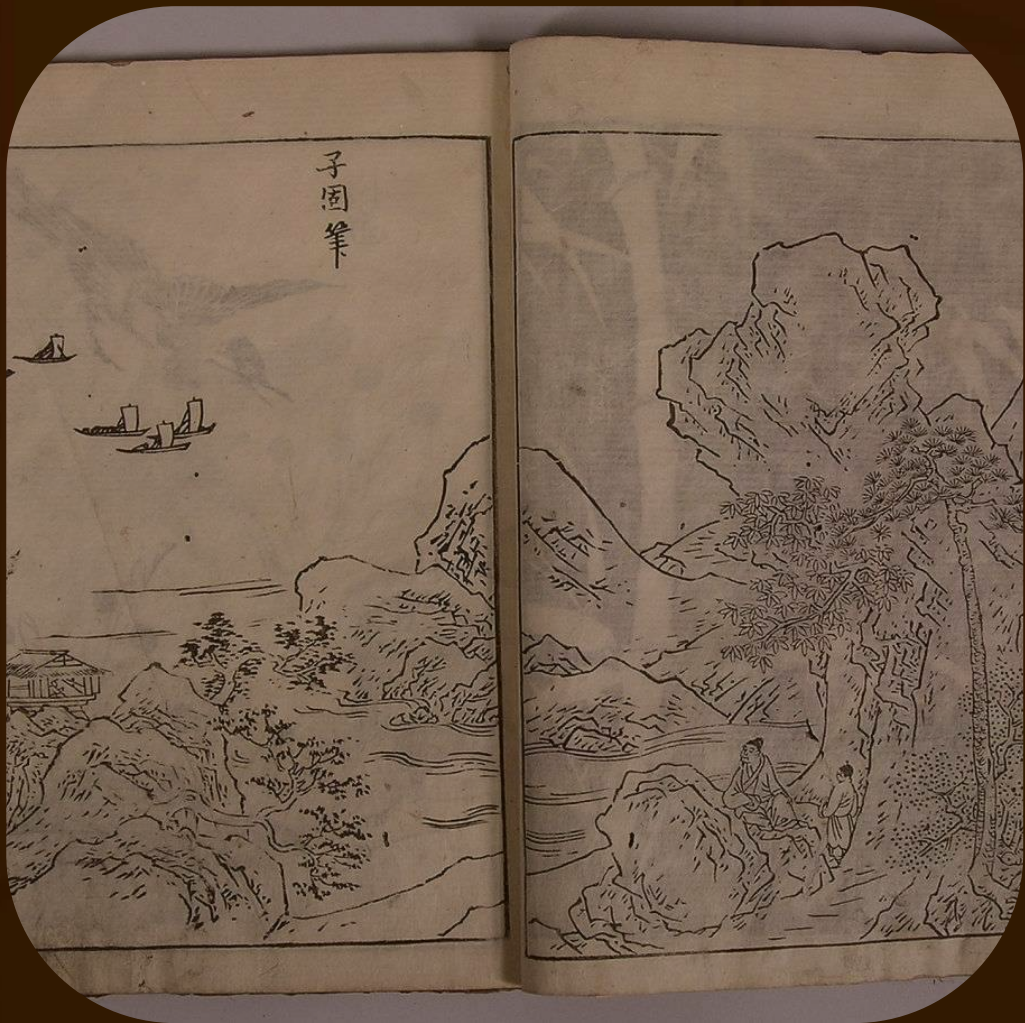 子固筆